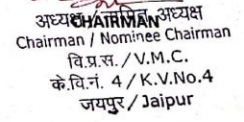 अध्यक्ष CHAIRMAN अध्यक्ष
Chairman / Nominee Chairman
वि.प्र.स. / V.M.C.
के.वि.नं. 4 / K.V.No.4
जयपुर / Jaipur